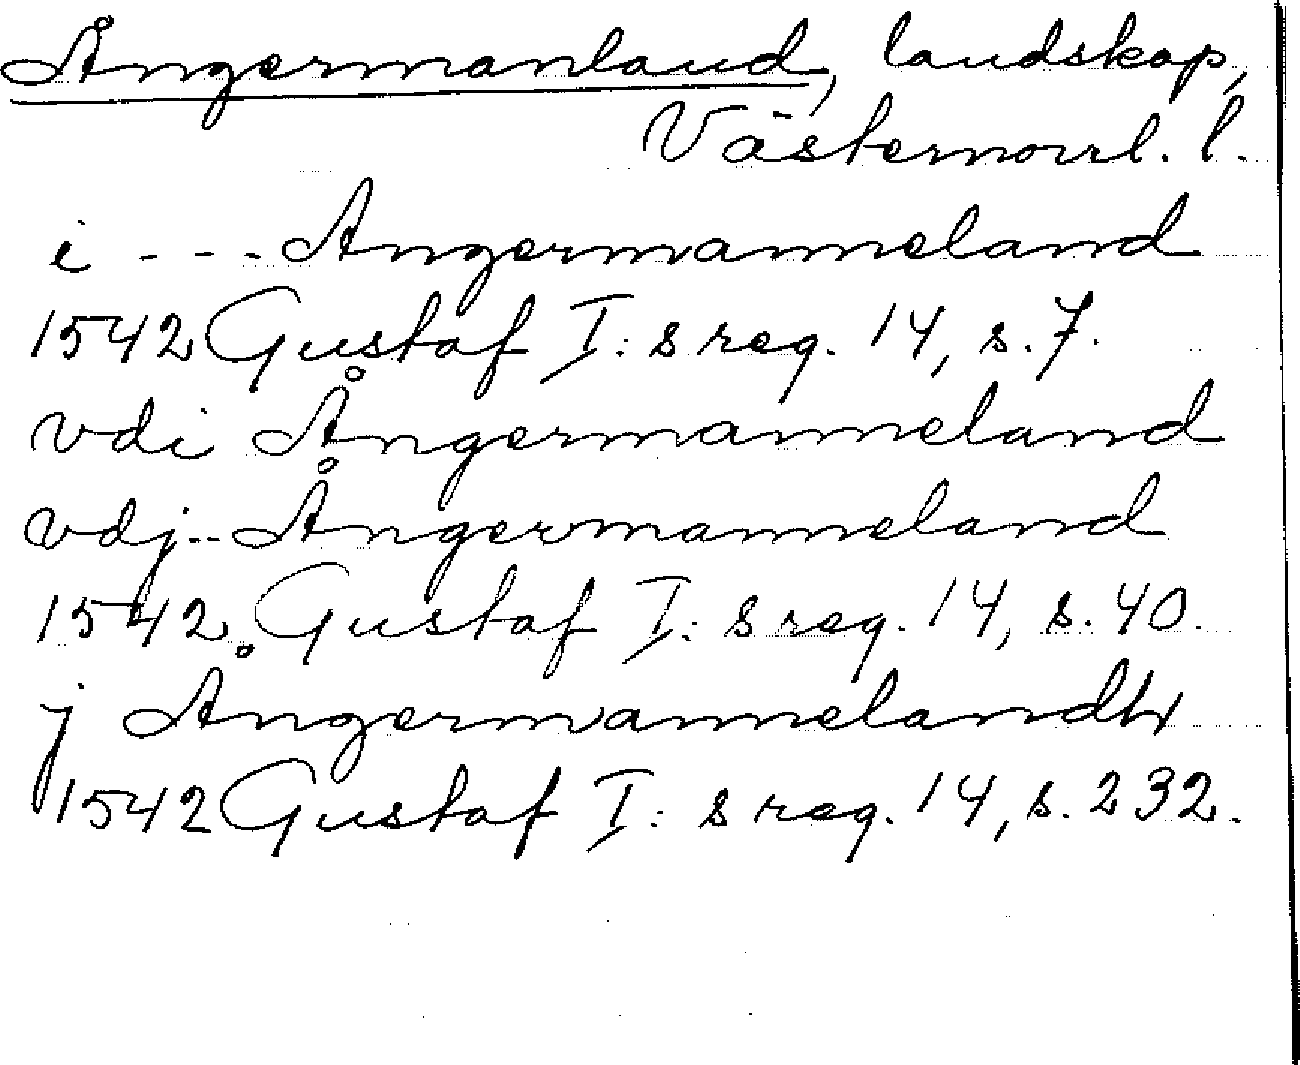 Ångermanland, landskap,
Västernorrl. l.
i - - - Angermanneland
1542 Gustaf I:s reg. 14, s. 7.
vdi Ångermanneland
vdj -- Ångermanneland
1542 Gustaf I:s reg. 14, s. 40.
j Ångermannelandh
1542 Gustaf I:s reg. 14, s. 232.